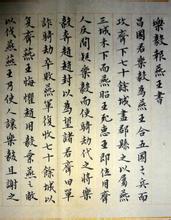 樂毅報燕王書
昌國君樂毅為燕王合五國之兵而
攻齊下七十餘城盡郡縣之以屬燕
三城未下而燕王死王即位用齊
人反間疑樂毅而使騎劫代之將樂
毅奔趙趙封以為望諸君齊田單
詐騎劫卒敗燕軍復收七十餘城以
復齊燕王悔懼趙用樂毅乘燕之敝
以伐燕燕王乃使人讓樂毅且謝之